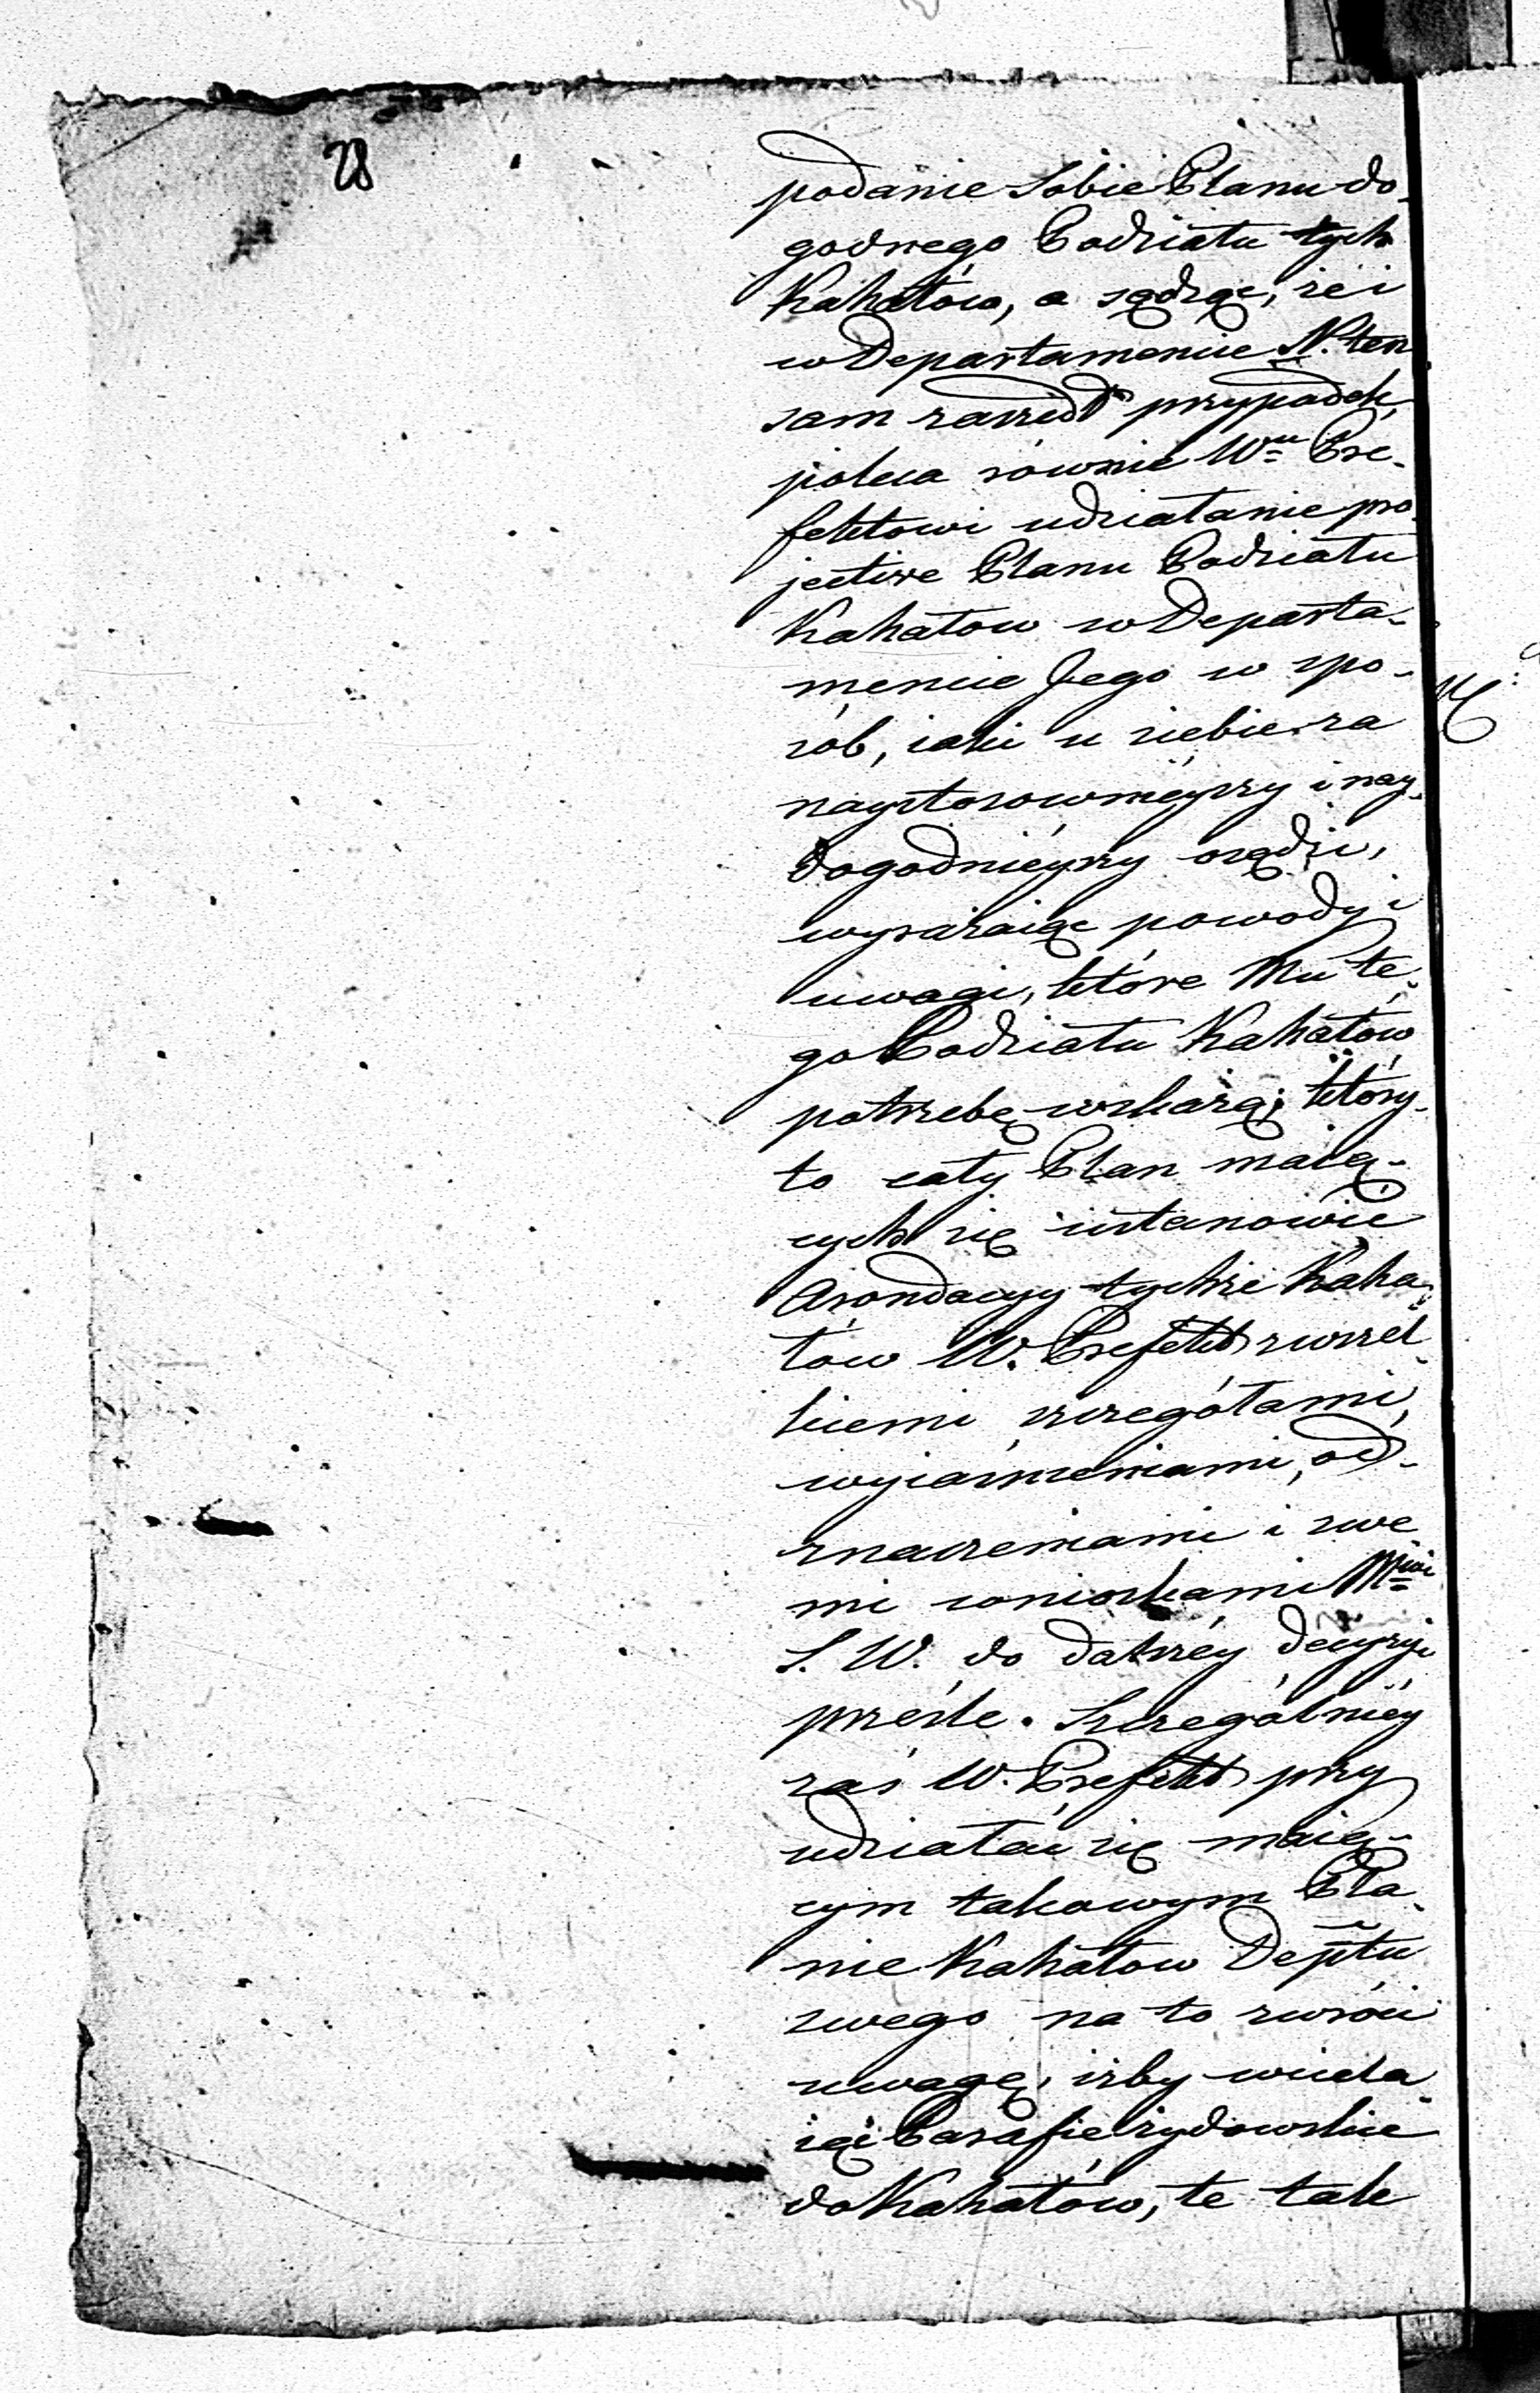 28
podanie Sobie Planu do-
godnego Podziału tych
Kahałów, a sądząc, że i
w Departamencie N. ten
sam zaszedł przypadek,
poleca równie Wmu Pre-
fektowi udziałanie pro-
jective Planu Podziału
Kahałow w Departa-
mencie Jego w spo-
sób, iaki u siebie za
naystosownieyszy i nay-
dogodnieyszy osądzi,
wyrażaiąc powody i
uwagi, które Mu te-
go Podziału Kahałów
potrzebę wskażą; który-
to cały Plan maią-
cych się ustanowić
Arondacyy tychże Kaha-
łów W. Prefekt z wszel-
kiemi szczegółami,
wyiaśnieniami, od-
znaczeniami i swe
mi wnioskami Mwi
S. W. do dalszéy decyzyi
prześle. Szczególniéy
zaś W. Prefekt przy
udziałać się maią-
cym takowym Pla-
nie Kahałow Deptu
swego na to zwróci
uwagę, iżby wciela-
iąc Parafie żydowskie
do Kahałów, te tak